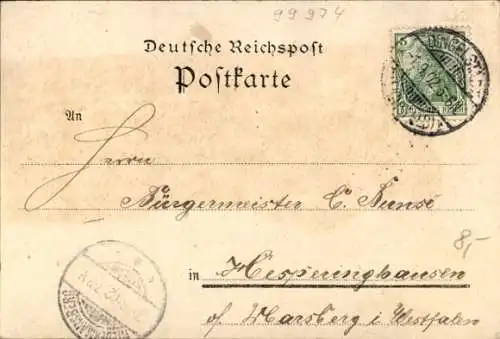 99974
Deutsche Reichspost
Postkarte
An
Herrn
Bürgermeister C. Bunse
8,-
in Hesperinghausen
of. Marsberg i Westfalen